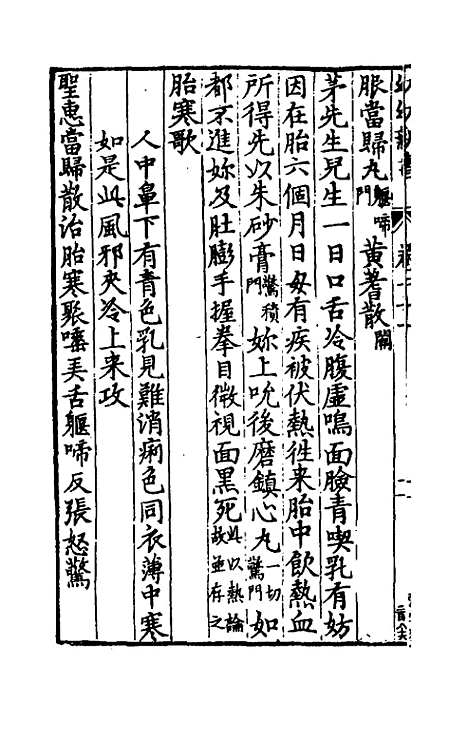 脹當歸丸軀啼門黃著散闕
茅先生兒生一日口舌冷腹虛鳴面臉青喫乳有妨
因在胎六個月日毋有疾被伏熱徃来胎中飲熱血
所得先以朱砂膏驚積門妳上吮後磨鎮心丸一切驚門如
都不進妳及肚膨手握拳目微視面黑死此以熱論故並存之
胎寒歌
人中鼻下有青色乳見難消痢色同衣薄中寒
如是此風邪夾冷上来攻
聖惠當歸散治胎寒聚囓弄舌軀啼反張怒驚